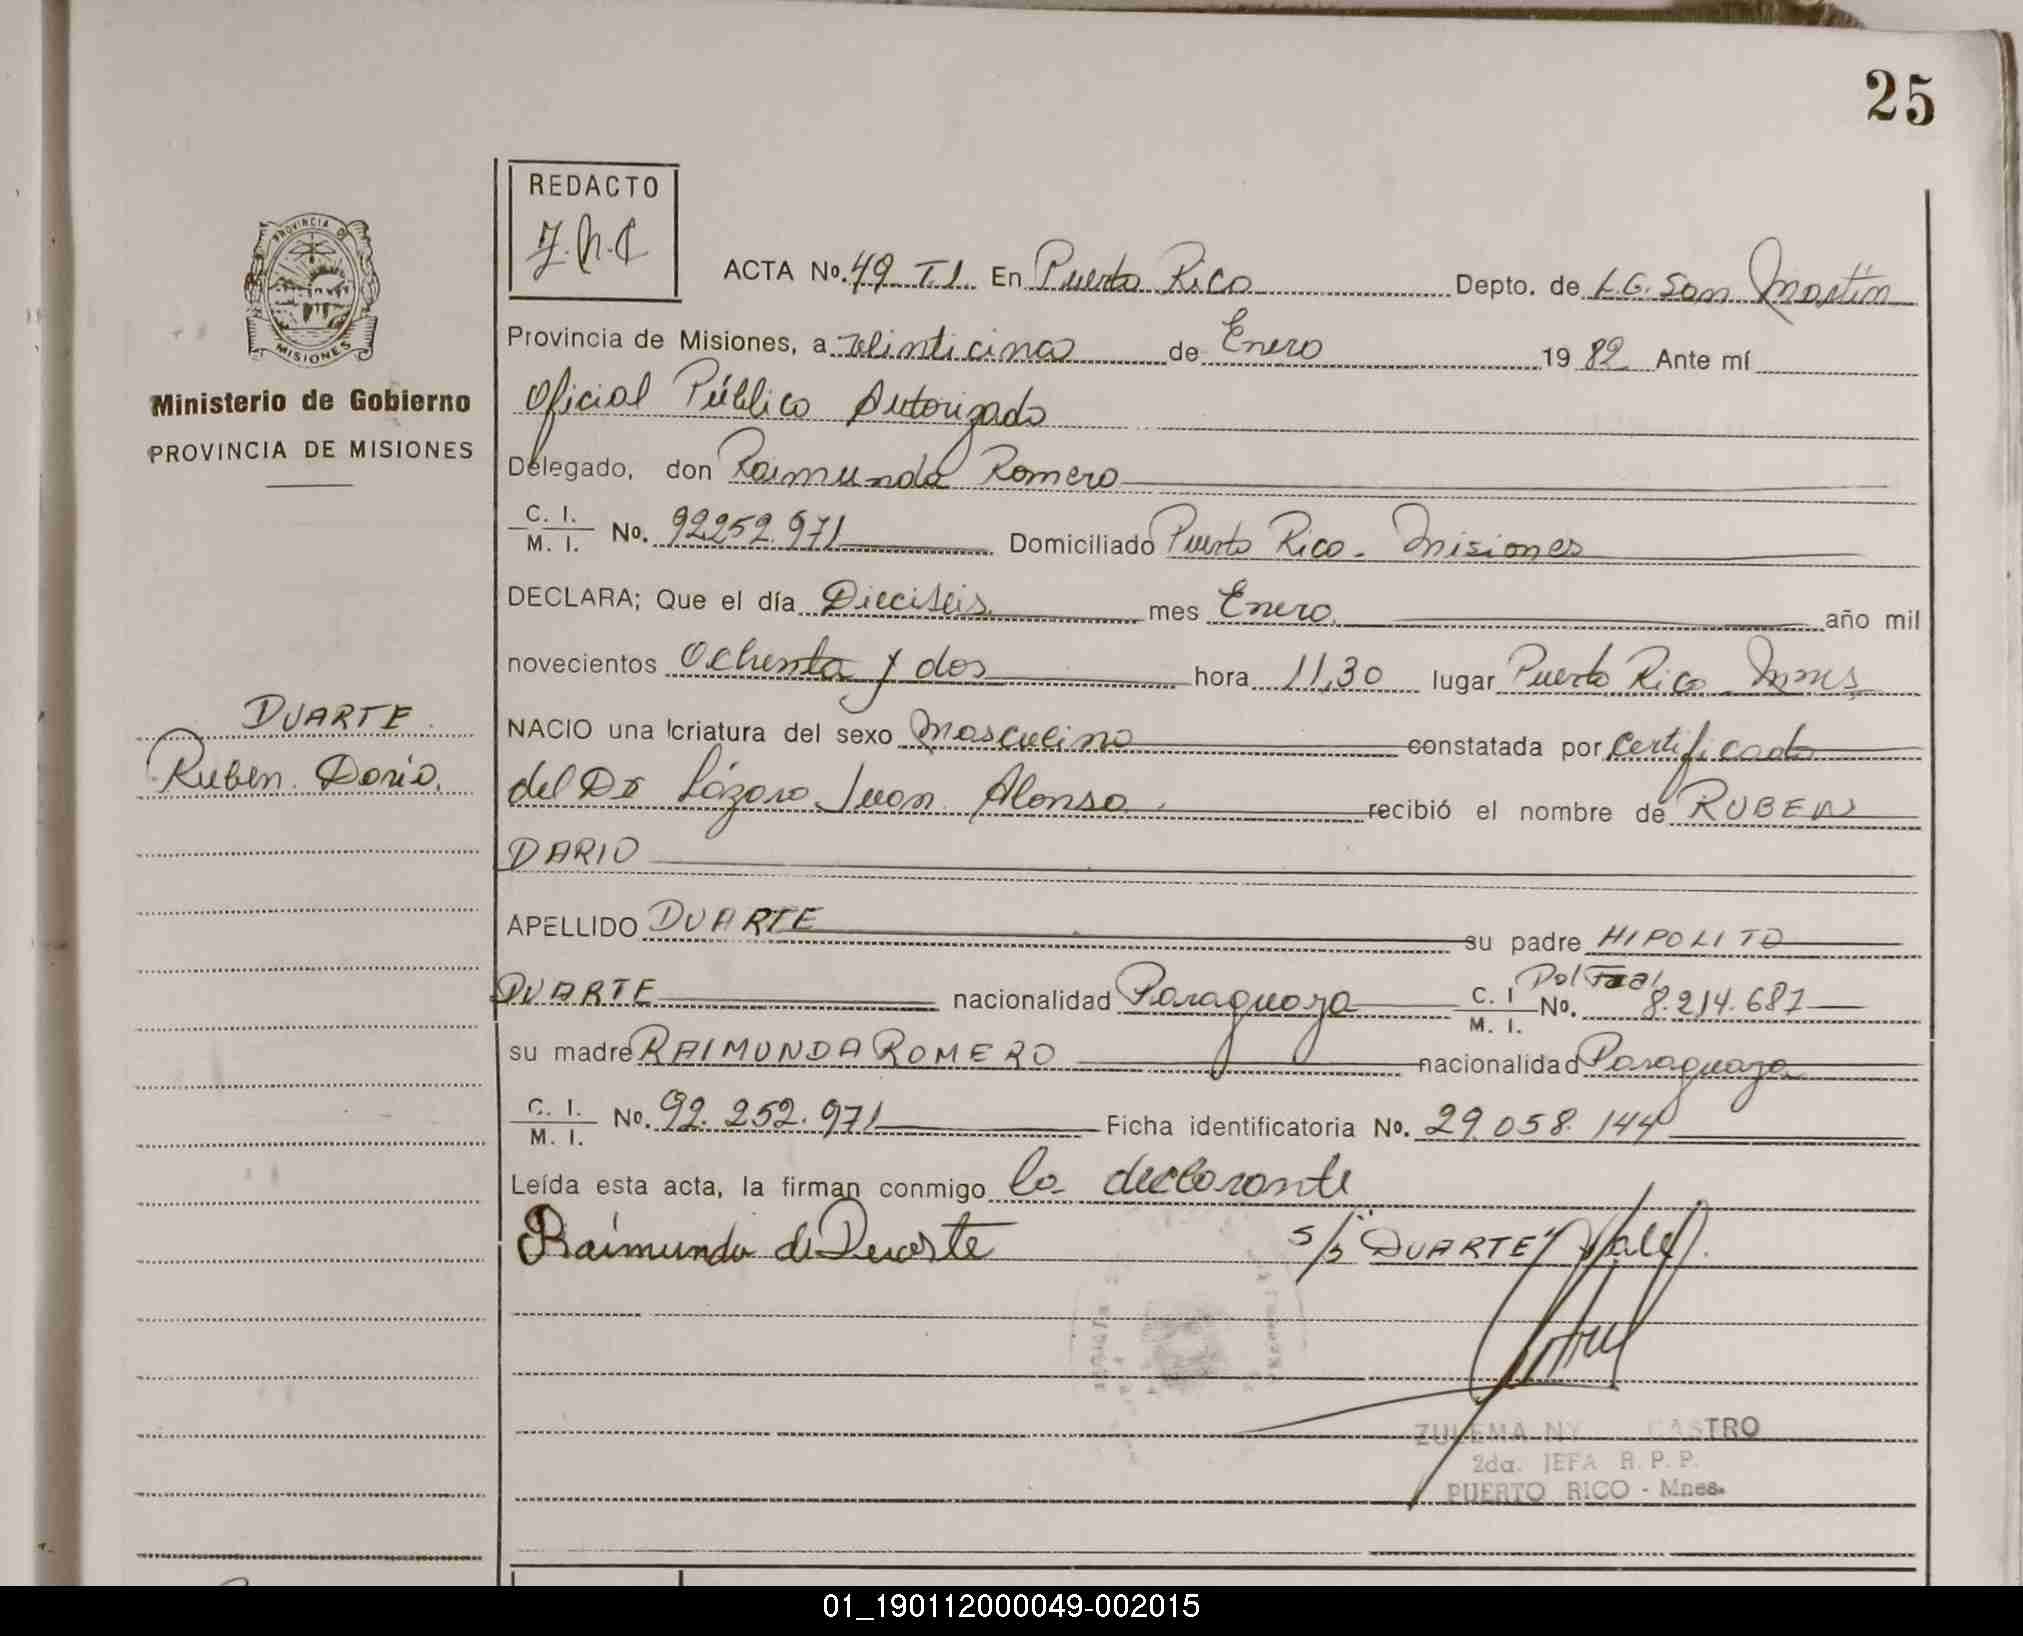 25
REDACTO
PROVINCIA DE
MISIONES
Ministerio de Gobierno
PROVINCIA DE MISIONES
ACTA No. 49 T.I. En Puerto Rico Depto. de L.G. San Martín
Provincia de Misiones, a Veinticinco de Enero 1982 Ante mí
Oficial Público Autorizado
Delegado, don Raimunda Romero
C. I. M. I. No. 92.252.971 Domiciliado Puerto Rico - Misiones
DECLARA; Que el día Dieciseis mes Enero año mil
novecientos Ochenta y dos hora 11,30 lugar Puerto Rico Mnes
DUARTE
Ruben Dario.
NACIO una criatura del sexo Masculino constatada por Certificado
del Dr Lázaro Juan Alonso recibió el nombre de RUBEN
DARIO
APELLIDO DUARTE su padre HIPOLITO
DUARTE nacionalidad Paraguaya C. I M. I. No. Pol 8.214.687
su madre RAIMUNDA ROMERO nacionalidad Paraguaya
C. I. M. I. No. 92.252.971 Ficha identificatoria No. 29.058.144
Leída esta acta, la firman conmigo la declarante
Raimunda de Duarte S/b "DUARTE" Vale
ZULEMA CASTRO
2da. JEFA R. P. P.
PUERTO RICO - Mnes.
01_190112000049-002015